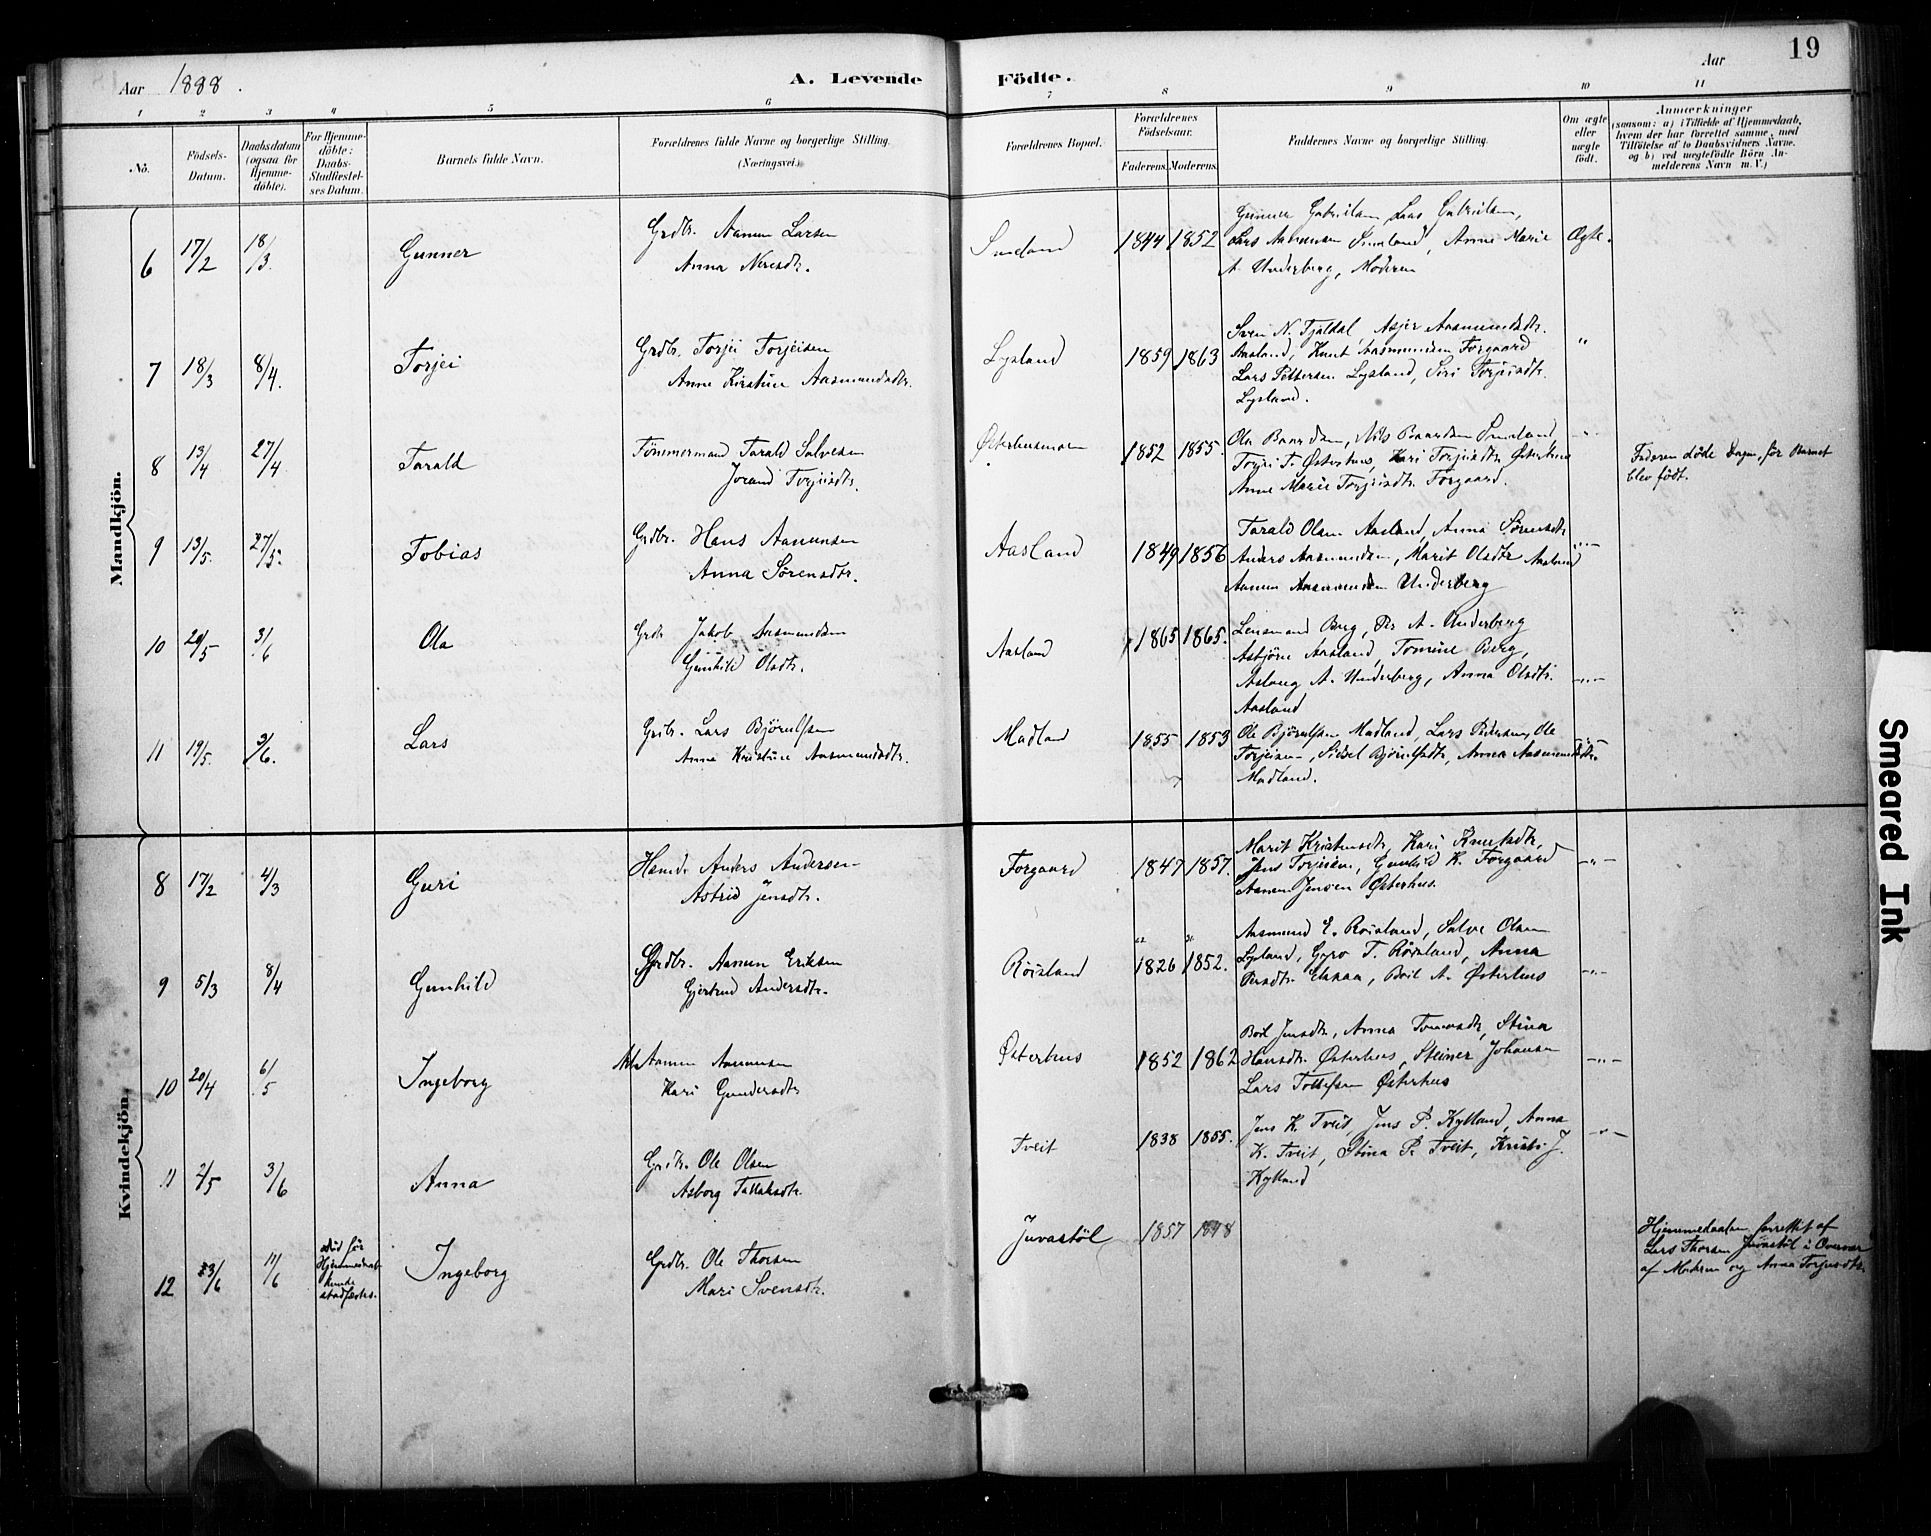 19
Aar 1888.
A. Levende Födte.
Aar
1 2 3 4 5 6 7 8 9 10 11
No.
Födsels-Datum.
Daabsdatum (ogsaa for Hjemme-döbte).
For Hjemme-döbte: Daabs-Stadfæstel-ses Datum.
Barnets fulde Navn.
Forældrenes fulde Navne og borgerlige Stilling.
(Næringsvei.)
Forældrenes Bopæl.
Forældrenes Födselsaar.
Faderens. Moderens.
Faddernes Navne og borgerlige Stilling.
Om ægte eller uægte født.
Anmærkninger
(saasom: a) i Tilfælde af Hjemmedaab,
hvem der har forrettet samme, med
Tilföielse af to Daabsvidners Navne.
og b) ved uægtefödte Börn An-
melderens Navn m.V.)
Mandkjön.
6 17/2 18/3. Gunner Grdbr. Aanen Larsen 1844 1852 Gunner Gabrielsen, Lars Gabrielsen, Ægte.
Anna Lars Aanensen Anne Marie
A. Underberg, Moderen
7 18/3 8/4. Torjei Grdbr. Torjei Torjeisen Lysland 1859 1863 Sven N. Aasmundsdtr. "
Anne Kirstine Aasmundsdtr. Aasland, Knut Aasmundsen Forgaard
Lars Pettersen Lysland, Siri Torjeisdtr.
Lysland.
8 13/4 27/4 Tarald Tömmermand Tarald Salvesen 1852 1855. Ole Baardsen, Nils Baardsen Faderen döde Dagen för Barnet
Jorand Torjeisdtr. Torjei T. Østerhus, Kari Torjeisdtr. Østerhus blev født.
Anne Marie Torjeisdtr. Forgaard.
9 13/5. 27/5. Tobias Grdbr. Hans Aanensen Aasland 1849 1856 Tarald Olsen Aasland, Anna Sörensdtr
Anna Sörensdtr. Anders Aasmundsen, Marit Olsdtr Aasland
Aanen Aasmundsen Underberg
10 20/5 3/6 Ola Grdbr Jakob Aasmundsen Aasland 1865 1865. Lensmand Berg, Per A. Underberg
Gunhild Olsdtr. Asbjörn Aasland, Tomine Berg,
Aslaug A. Underberg, Anna Olsdtr. -"-
Aasland
11 19/5. 3/6. Lars Grdbr. Lars Björnulfsen Madland 1855 1853 Ole Björnulfsen Madland, Lars Pedersen, Ole
Anne Kirstine Aasmundsdtr. Torjeisen, Sidsel Björnulfsdtr, Anna Aasmundsdtr.
Madland.
Kvindekjön.
8 17/2 4/3 Guri Anders Andersen Forgaard 1847 1857. Marit Kristensdtr, Kari Knutsdtr, -"-
Astrid Jensdtr. Jens Torjeisen, Gunhild K. Forgaard
Aanen Jensen Østerhus.
9 5/3 8/4 Gunhild Grdbr. Aanen Eriksen Röisland 1826 1852. Aasmund E. Roisland, Salve Olsen -"-
Gjertrud Andersdtr. Lysland, Gyro T. Röisland, Anna
Boil A. Østerhus
10 20/4 6/5 Ingeborg Aanen Aanensen Østerhus 1852 1862 Boil Jensdtr, Anna Stina -"-
Kari Gundersdtr Hansdtr. Østerhus, Steiner Johansen
Lars Tollefsen Østerhus
11 2/5 3/6 Anna Grdbr. Ole Olsen Tveit 1838 1855. Jens K. Tveit, Jens P. Kylland, Anna -"-
Asborg Tallaksdtr. K. Tveit, Stina P. Tveit, Kristi J.
Kylland
12 3/6 11/6 död för Hjemmedaab kunde stadfæstes. Ingeborg Grdbr. Ole Thorsen Juvastöl 1857 Hjemmedaaben forrettet af
Mari Svensdtr. Lars Thorsen Juvastöl i Overvær
af Moderen og Anna Torjeisdtr.
Smeared Ink